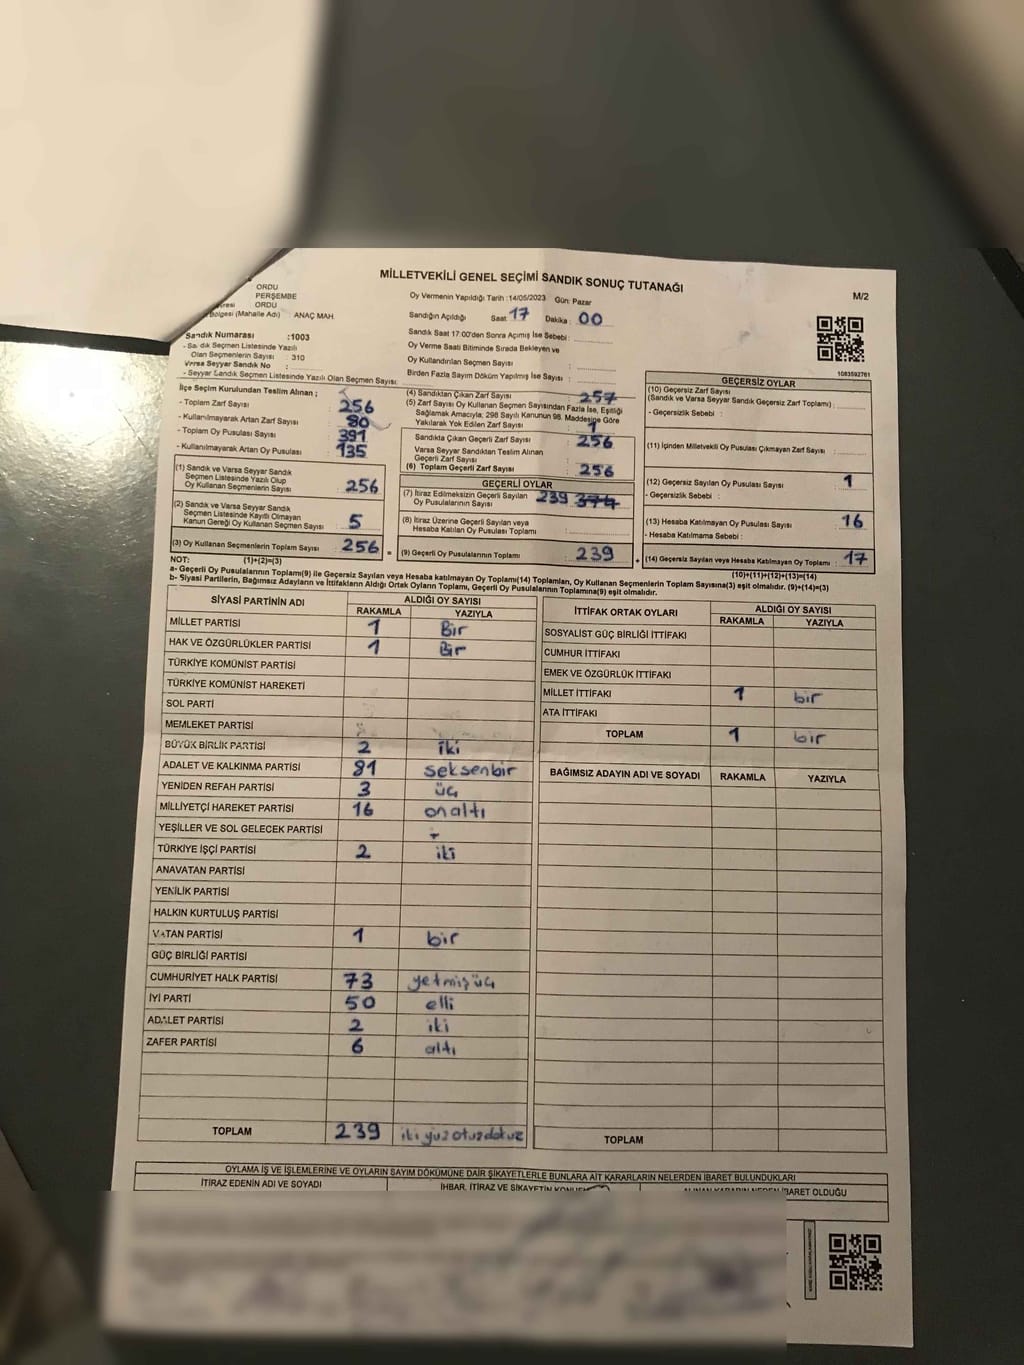 MİLLETVEKİLİ GENEL SEÇİMİ SANDIK SONUÇ TUTANAĞI
M/2
ORDU
PERŞEMBE
ORDU
Bölgesi (Mahalle Adı) ANAÇ MAH.
Oy Vermenin Yapıldığı Tarih :14/05/2023 Gün: Pazar
Sandığın Açıldığı Saat 17 Dakika : 00
Sandık Saat 17:00'den Sonra Açımış İse Sebebi :
Oy Verme Saati Bitiminde Sırada Bekleyen ve
Oy Kullandırılan Seçmen Sayısı :
Birden Fazla Sayım Döküm Yapılmış İse Sayısı :
1083592761
Sandık Numarası :1003
- Sandık Seçmen Listesinde Yazılı
Olan Seçmenlerin Sayısı : 310
Varsa Seyyar Sandık No :
- Seyyar Sandık Seçmen Listesinde Yazılı Olan Seçmen Sayısı:
İlçe Seçim Kurulundan Teslim Alınan ;
- Toplam Zarf Sayısı : 256
- Kullanılmayarak Artan Zarf Sayısı : 80
- Toplam Oy Pusulası Sayısı : 391
- Kullanılmayarak Artan Oy Pusulası : 135
(1) Sandık ve Varsa Seyyar Sandık
Seçmen Listesinde Yazılı Olup
Oy Kullanan Seçmenlerin Sayısı : 256
(2) Sandık ve Varsa Seyyar Sandık
Seçmen Listesinde Kayıtlı Olmayan
Kanun Gereği Oy Kullanan Seçmen Sayısı : 5
(3) Oy Kullanan Seçmenlerin Toplam Sayısı : 256
(1)+(2)=(3)
(4) Sandıktan Çıkan Zarf Sayısı : 257
(5) Zarf Sayısı Oy Kullanan Seçmen Sayısından Fazla İse, Eşitliği
Sağlamak Amacıyla; 298 Sayılı Kanunun 98. Maddesine Göre
Yakılarak Yok Edilen Zarf Sayısı : 1
Sandıkta Çıkan Geçerli Zarf Sayısı : 256
Varsa Seyyar Sandıktan Teslim Alınan
Geçerli Zarf Sayısı :
(6) Toplam Geçerli Zarf Sayısı : 256
GEÇERLİ OYLAR
(7) İtiraz Edilmeksizin Geçerli Sayılan
Oy Pusulalarının Sayısı : 239 374
(8) İtiraz Üzerine Geçerli Sayılan veya
Hesaba Katılan Oy Pusulası Toplamı :
= (9) Geçerli Oy Pusulalarının Toplamı : 239
GEÇERSİZ OYLAR
(10) Geçersiz Zarf Sayısı
(Sandık ve Varsa Seyyar Sandık Geçersiz Zarf Toplamı) :
- Geçersizlik Sebebi :
(11) İçinden Milletvekili Oy Pusulası Çıkmayan Zarf Sayısı :
(12) Geçersiz Sayılan Oy Pusulası Sayısı : 1
- Geçersizlik Sebebi :
(13) Hesaba Katılmayan Oy Pusulası Sayısı : 16
- Hesaba Katılmama Sebebi :
+ (14) Geçersiz Sayılan veya Hesaba Katılmayan Oy Toplamı : 17
(10)+(11)+(12)+(13)=(14)
NOT:
a- Geçerli Oy Pusulalarının Toplamı(9) ile Geçersiz Sayılan veya Hesaba katılmayan Oy Toplamı(14) Toplamları, Oy Kullanan Seçmenlerin Toplam Sayısına(3) eşit olmalıdır. (9)+(14)=(3)
b- Siyasi Partilerin, Bağımsız Adayların ve İttifakların Aldığı Ortak Oyların Toplamı, Geçerli Oy Pusulalarının Toplamına(9) eşit olmalıdır.
SİYASİ PARTİNİN ADI ALDIĞI OY SAYISI
RAKAMLA YAZIYLA
MİLLET PARTİSİ 1 Bir
HAK VE ÖZGÜRLÜKLER PARTİSİ 1 Bir
TÜRKİYE KOMÜNİST PARTİSİ
TÜRKİYE KOMÜNİST HAREKETİ
SOL PARTİ
MEMLEKET PARTİSİ
BÜYÜK BİRLİK PARTİSİ 2 iki
ADALET VE KALKINMA PARTİSİ 81 seksenbir
YENİDEN REFAH PARTİSİ 3 üç
MİLLİYETÇİ HAREKET PARTİSİ 16 onaltı
YEŞİLLER VE SOL GELECEK PARTİSİ
TÜRKİYE İŞÇİ PARTİSİ 2 iki
ANAVATAN PARTİSİ
YENİLİK PARTİSİ
HALKIN KURTULUŞ PARTİSİ
VATAN PARTİSİ 1 bir
GÜÇ BİRLİĞİ PARTİSİ
CUMHURİYET HALK PARTİSİ 73 yetmişüç
İYİ PARTİ 50 elli
ADALET PARTİSİ 2 iki
ZAFER PARTİSİ 6 altı
TOPLAM 239 ikiyüzotuzdokuz
İTTİFAK ORTAK OYLARI ALDIĞI OY SAYISI
RAKAMLA YAZIYLA
SOSYALİST GÜÇ BİRLİĞİ İTTİFAKI
CUMHUR İTTİFAKI
EMEK VE ÖZGÜRLÜK İTTİFAKI
MİLLET İTTİFAKI 1 bir
ATA İTTİFAKI
TOPLAM 1 bir
BAĞIMSIZ ADAYIN ADI VE SOYADI RAKAMLA YAZIYLA
TOPLAM
OYLAMA İŞ VE İŞLEMLERİNE VE OYLARIN SAYIM DÖKÜMÜNE DAİR ŞİKAYETLERLE BUNLARA AİT KARARLARIN NELERDEN İBARET BULUNDUKLARI
İTİRAZ EDENİN ADI VE SOYADI İHBAR, İTİRAZ VE ŞİKAYETİN KONUSU ALINAN KARARIN NEDEN İBARET OLDUĞU